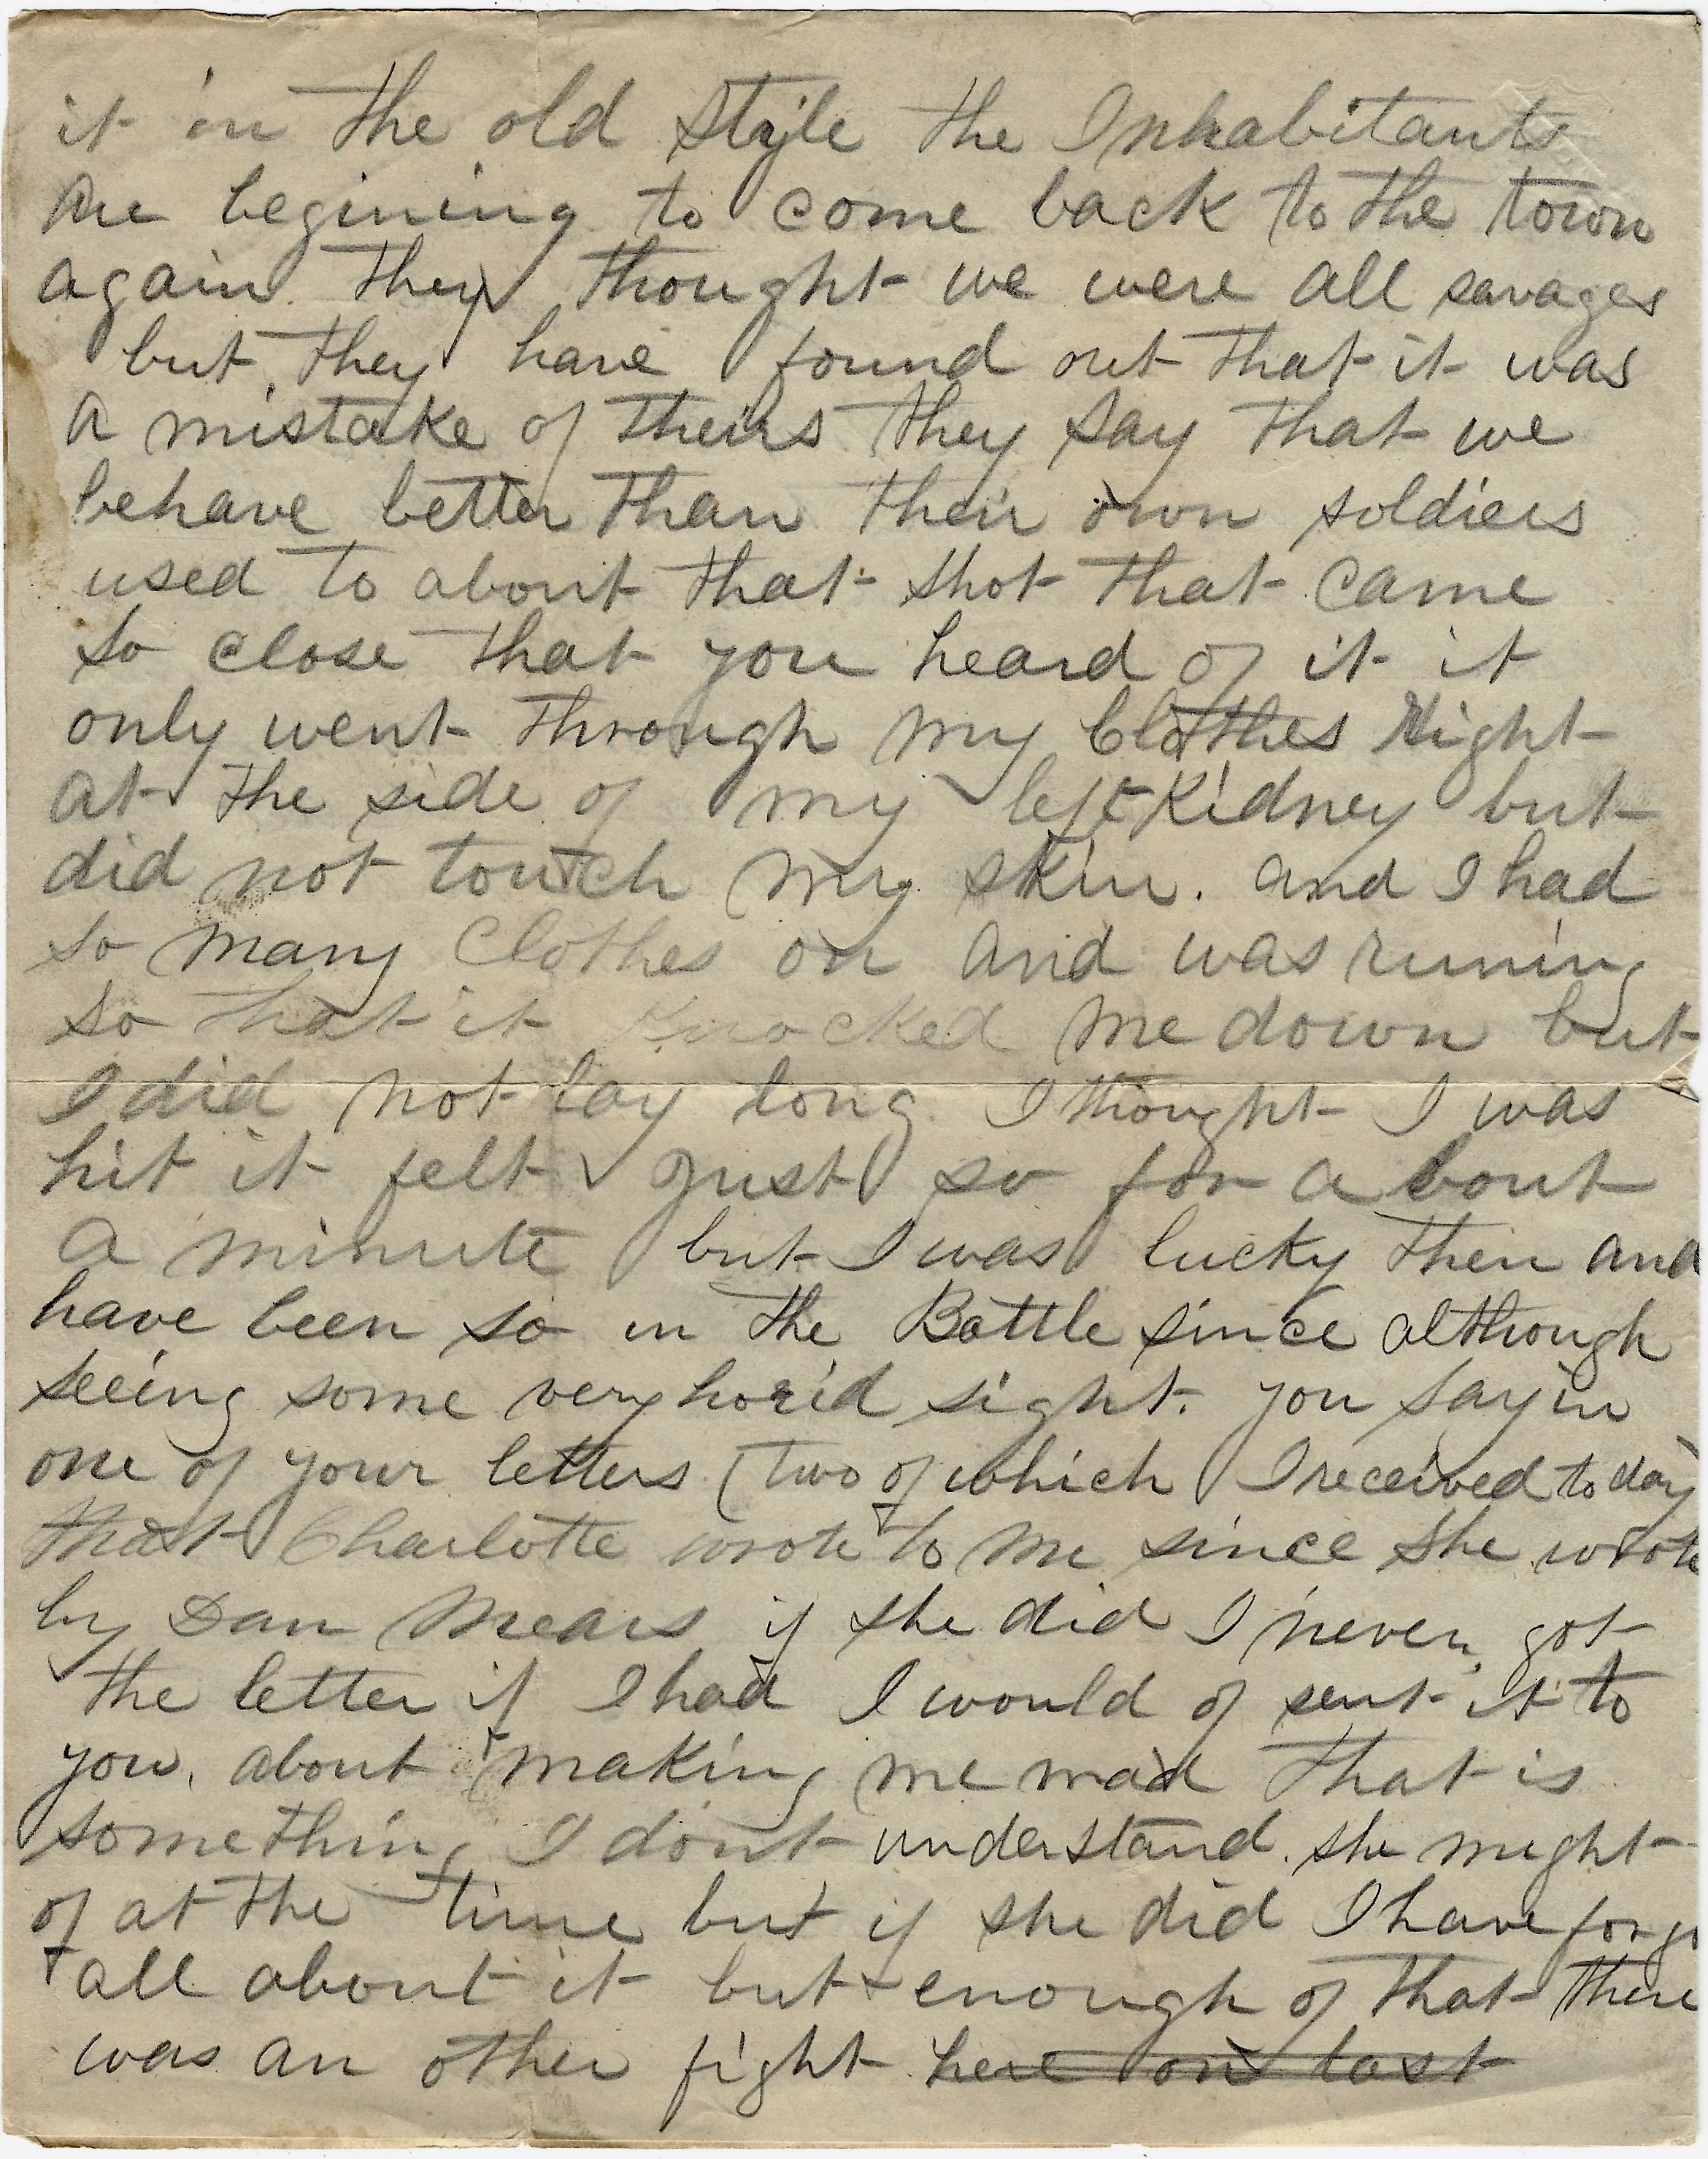 it in the old Style the Inhabitants
are begining to come back to the town
again. they thought we were all savages
but they have found out that it was
a mistake of theirs they say that we
behave better than their own soldiers
used to about that shot that came
so close that you heard of it it
only went through my Clothes Right
at the side of my left Kidney but
did not toutch my skin. and I had
so many Clothes on and was runing
so that it knocked me down but
I did not lay long I thought I was
hit it felt Just so for a bout
a minute but I was lucky then and
have been so in the Battle since although
seeing some very horid sight. you say in
one of your letters (two of which I received to day
that Charlotte wrote to me since she wrote
by Dan Mears if she did I never got
the letter if I had I would of sent it to
you. about making me mad that is
something I dont understand. she might
of at the time but if she did I have forgo
t all about it but enough of that there
was an other fight here on last